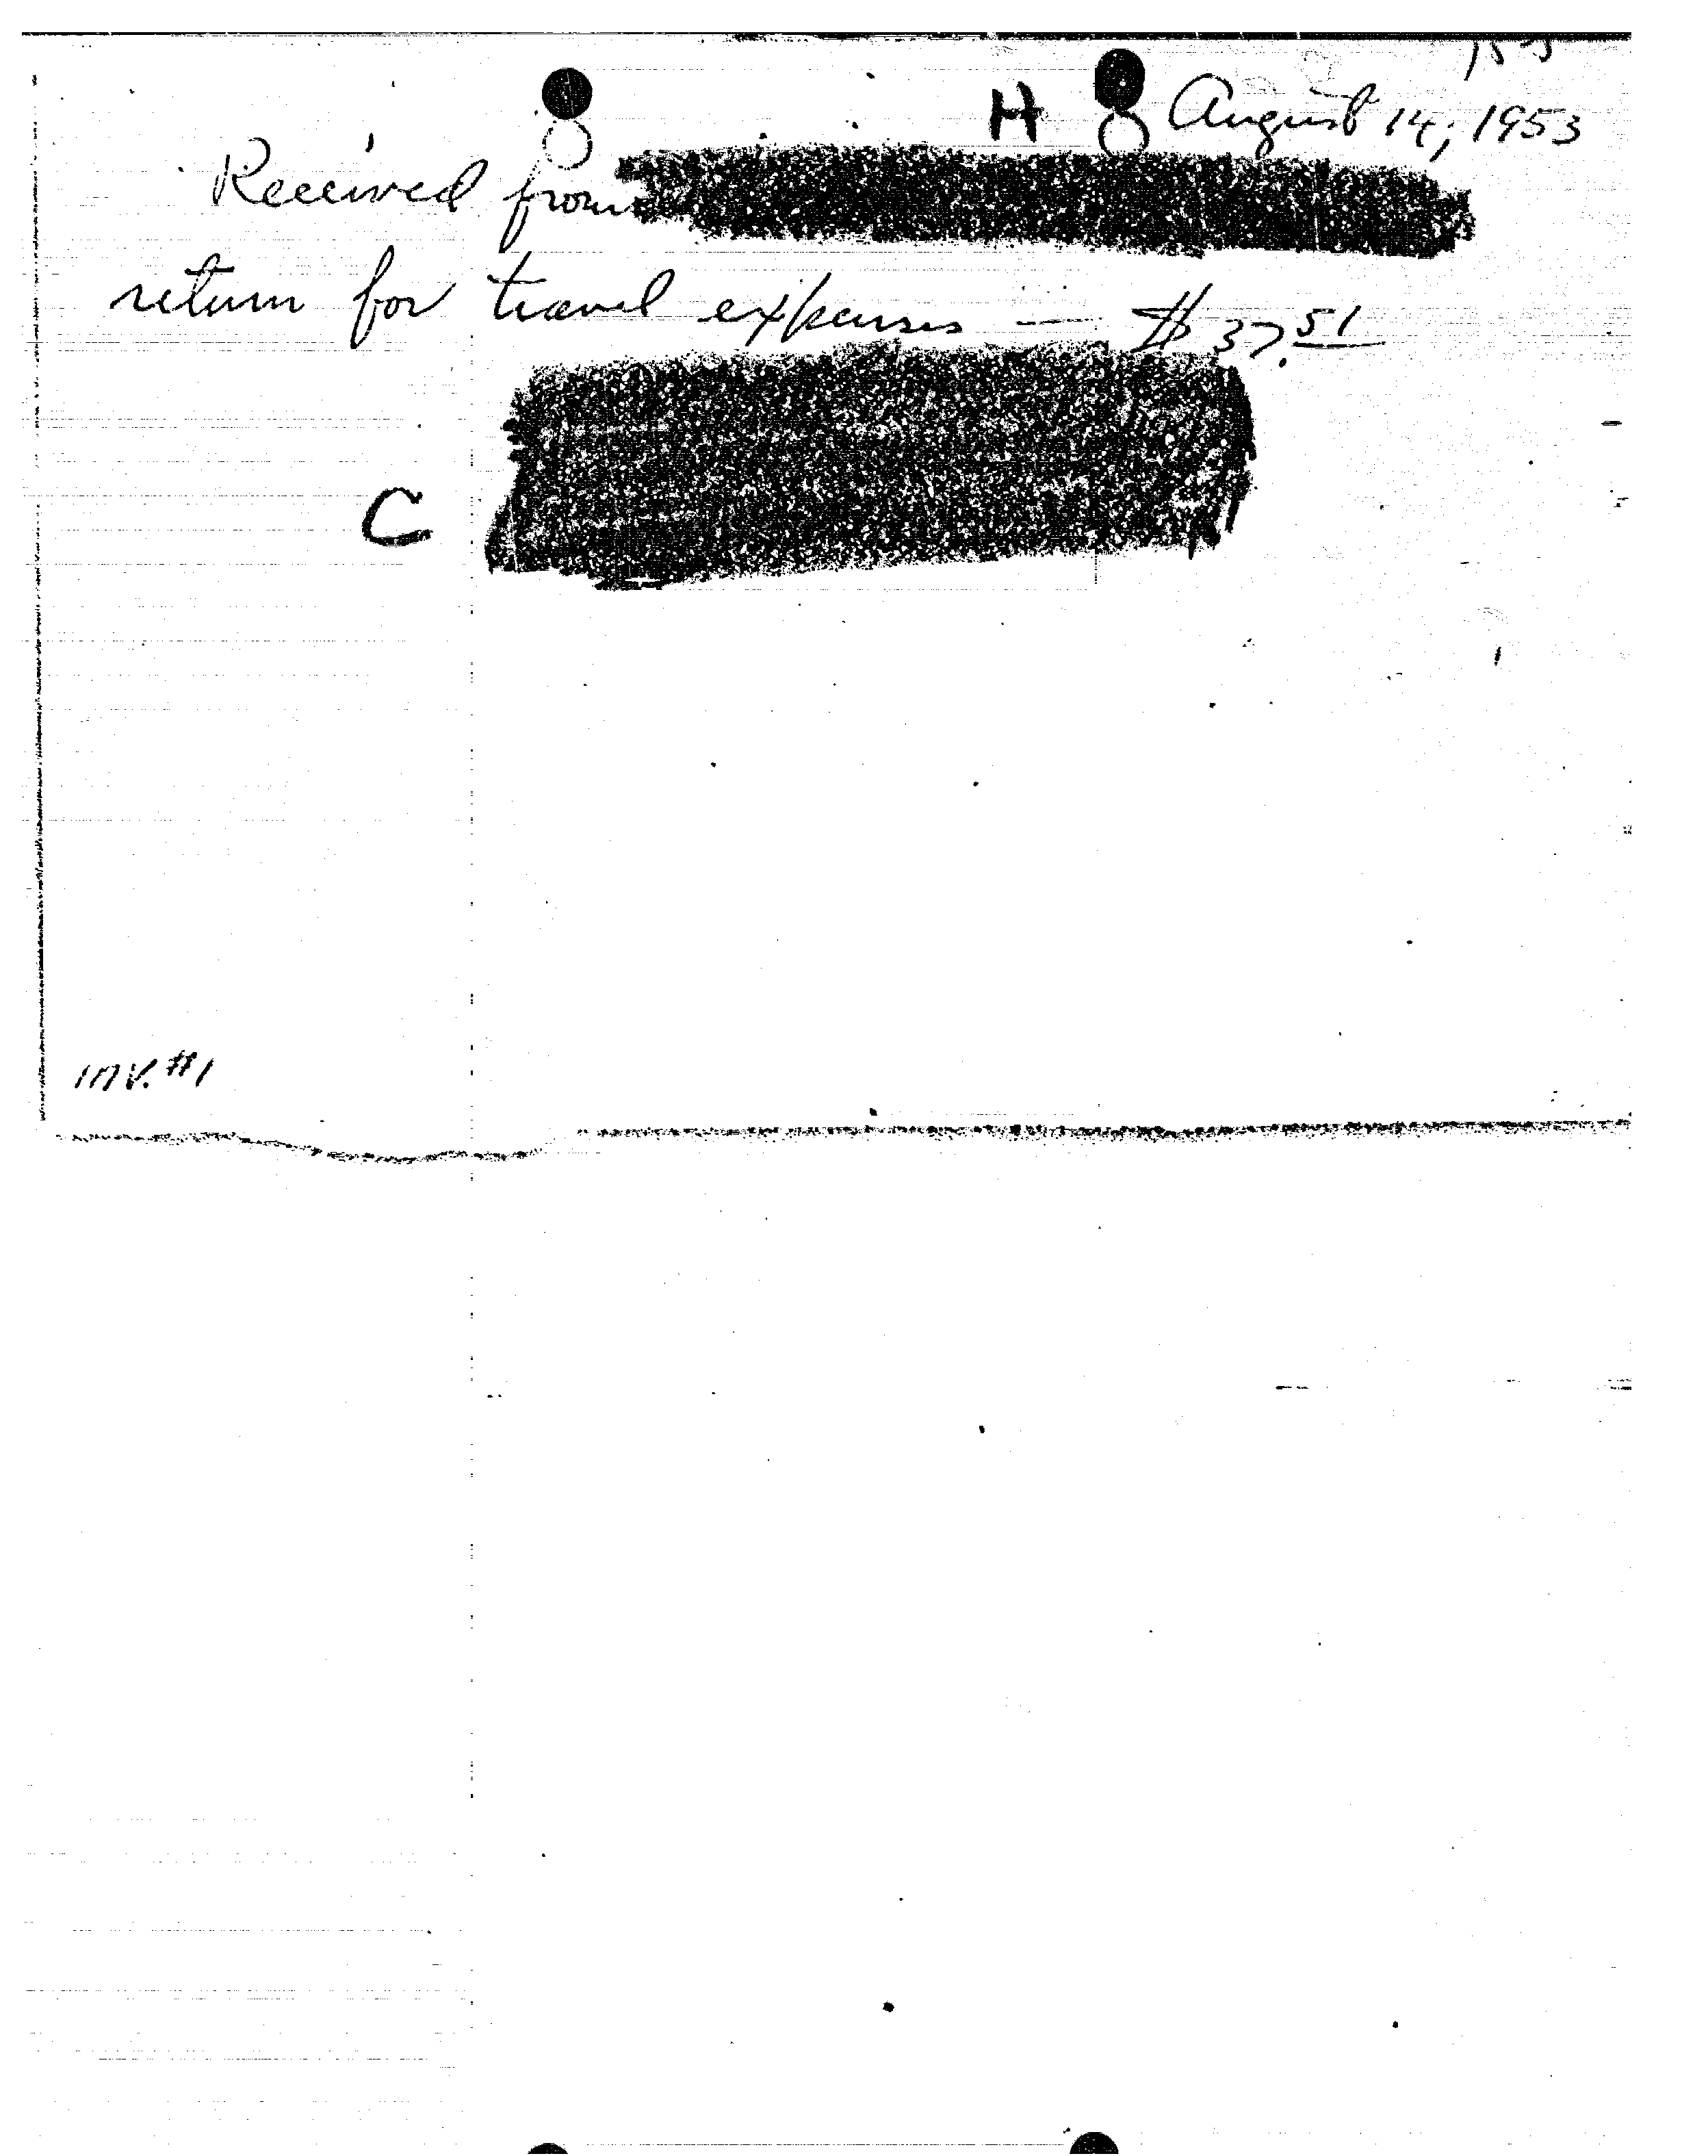 H August 14, 1953
Received from
return for travel expenses — $37.51
C
INV. #1